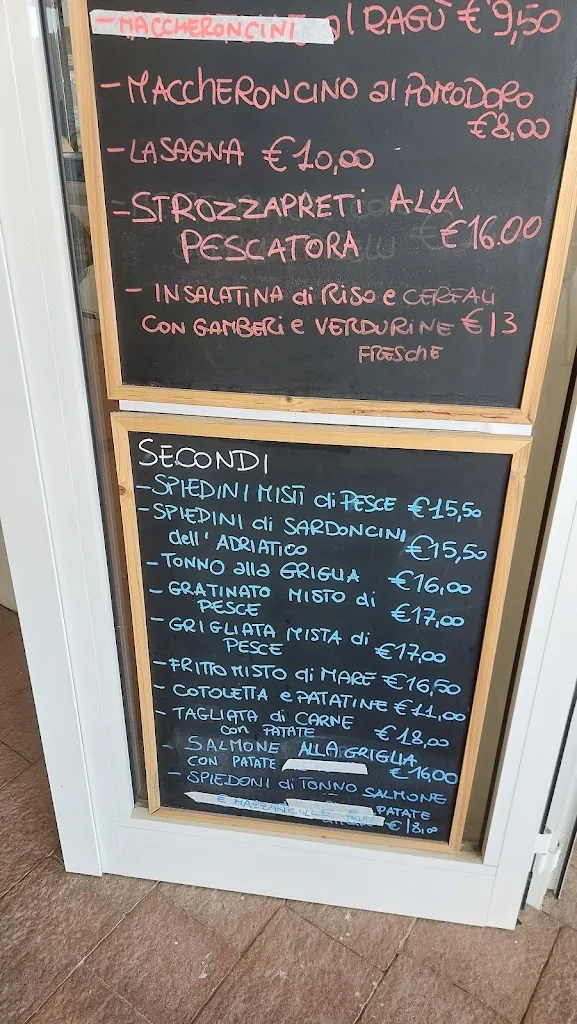 - MACCHERONCINI al RAGÙ € 9,50
- MACCHERONCINO al POMODORO
€8,00
- LASAGNA €10,00
- STROZZAPRETI ALLA
PESCATORA €16.00
- INSALATINA di RISO e CEREALI
CON GAMBERI e VERDURINE €13
FRESCHE
SECONDI
- SPIEDINI MISTI di PESCE €15,50
- SPIEDINI di SARDONCINI
dell'ADRIATICO €15,50
- TONNO alla GRIGLIA €16,00
- GRATINATO MISTO di
PESCE €17,00
- GRIGLIATA MISTA di
PESCE €17,00
- FRITTO MISTO di MARE €16,50
- COTOLETTA e PATATINE €11,00
- TAGLIATA di CARNE
con PATATE €18,00
- SALMONE ALLA GRIGLIA
CON PATATE €16,00
- SPIEDONI di TONNO SALMONE
E MAZZANCOLLE E PATATE
€18,00